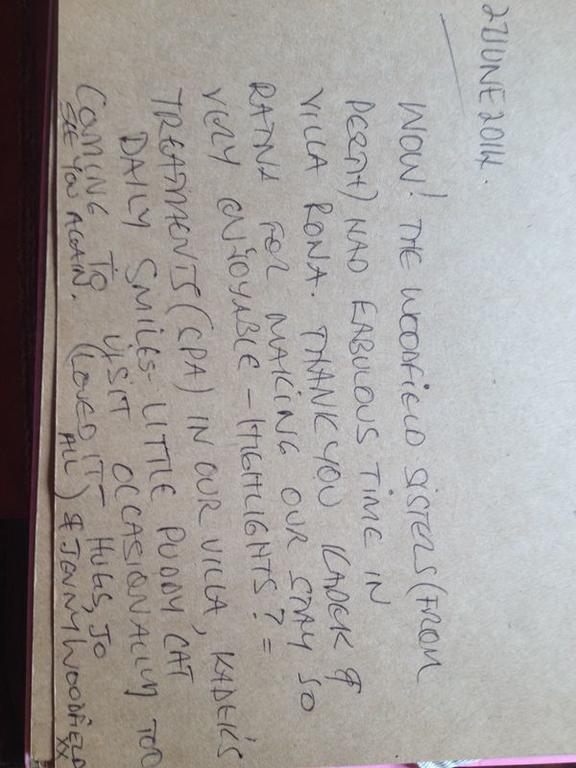 27 JUNE 2014.
WOW! THE WOODFIELD SISTERS (FROM
PERTH) HAD FABULOUS TIME IN
VILLA RONA. THANK YOU KADEK &
RATNA FOR MAKING OUR STAY SO
VERY ENJOYABLE - HIGHLIGHTS? =
TREATMENTS (SPA) IN OUR VILLA, KADEK'S
DAILY SMILES - LITTLE PUDDY CAT
COMING TO VISIT OCCASIONALLY TOO
SEE YOU AGAIN. (LOVED IT ALL) HUGS, JO
& JENNY WOODFIELD
XX